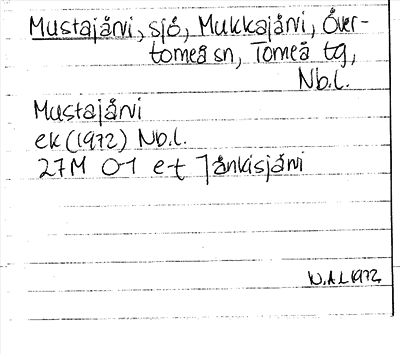 Mustajärvi, sjö, Mukkajärvi, Över-
torneå sn, Torneå tg,
Nb.l.
Mustajärvi
ek (1972) Nb.l.
27M 0-1 e-f Jänkisjärvi
W.A.L 1972